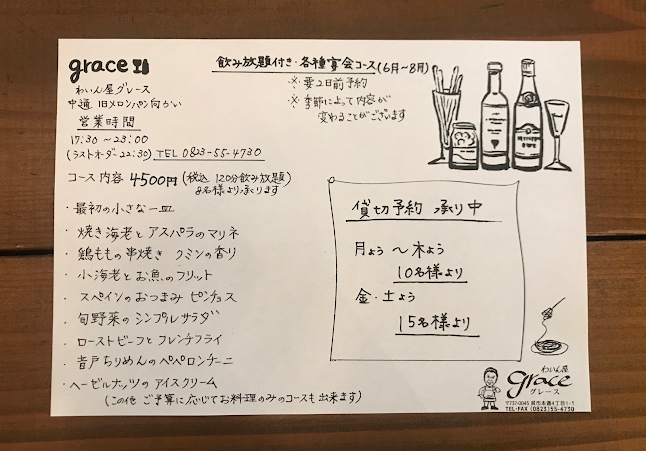 grace
わいん屋グレース
中通 旧メロンパン向かい
営業時間
17:30～23:00
(ラストオーダー22:30) TEL 0823-55-4730
飲み放題付き・各種宴会コース(6月～8月)
※要2日前予約
※季節によって内容が
変わることがございます
コース内容 4500円(税込 120分飲み放題)
2名様より承ります
・最初の小さな一皿
・焼き海老とアスパラのマリネ
・鶏ももの串焼き クミンの香り
・小海老とお魚のフリット
・スペインのおつまみ ピンチョス
・旬野菜のシンプルサラダ
・ローストビーフとフレンチフライ
・音戸ちりめんのペペロンチーニ
・ヘーゼルナッツのアイスクリーム
(この他 ご予算に応じてお料理のみのコースも出来ます)
貸切予約 承り中
月よう～木よう
10名様より
金・土よう
15名様より
わいん屋
grace
グレース
〒737-0045 呉市本通4丁目1-1
TEL・FAX (0823)55-4730